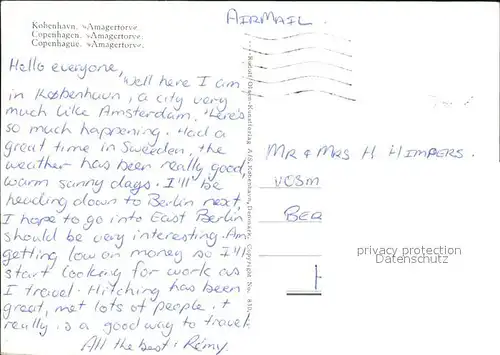 København. »Amagertorv«.
Copenhagen. »Amagertorv«.
Copenhague. »Amagertorv«.
AIRMAIL.
Hello everyone,
Well here I am
in København, a city very
much like Amsterdam, There's
so much happening. Had a
great time in Sweeden, the
weather has been really good,
warm sunny days. I'll be
heading down to Berlin next,
I hope to go into East Berlin
should be very interesting. Am
getting low on money so I'll
start looking for work as
I travel. Hitching has been
great, met lots of people. +
really is a good way to travel.
All the best: Rémy.
Rudolf Olsen-Kunstforlag A/S, København, Danmark. Copyright No.
MR & MRS H HIMPERS.
privacy protection
Datenschutz